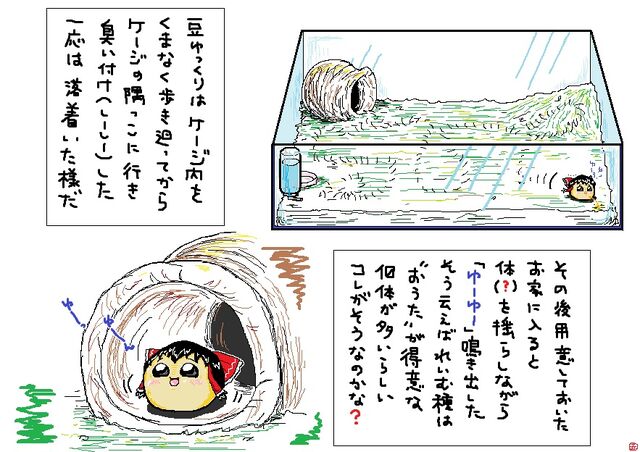 豆ゆっくりは ケージ内を
くまなく歩き廻ってから
ケージの隅っこに行き
臭い付け(しーしー)した
一応は 落着いた様だ
その後用意しておいた
お家に入ると
体(?)を揺らしながら
「ゆーゆー」鳴き出した
そう云えばれいむ種は
"おうた"が得意な
個体が多いらしい
コレがそうなのかな?
ゆ〜
ゆ〜